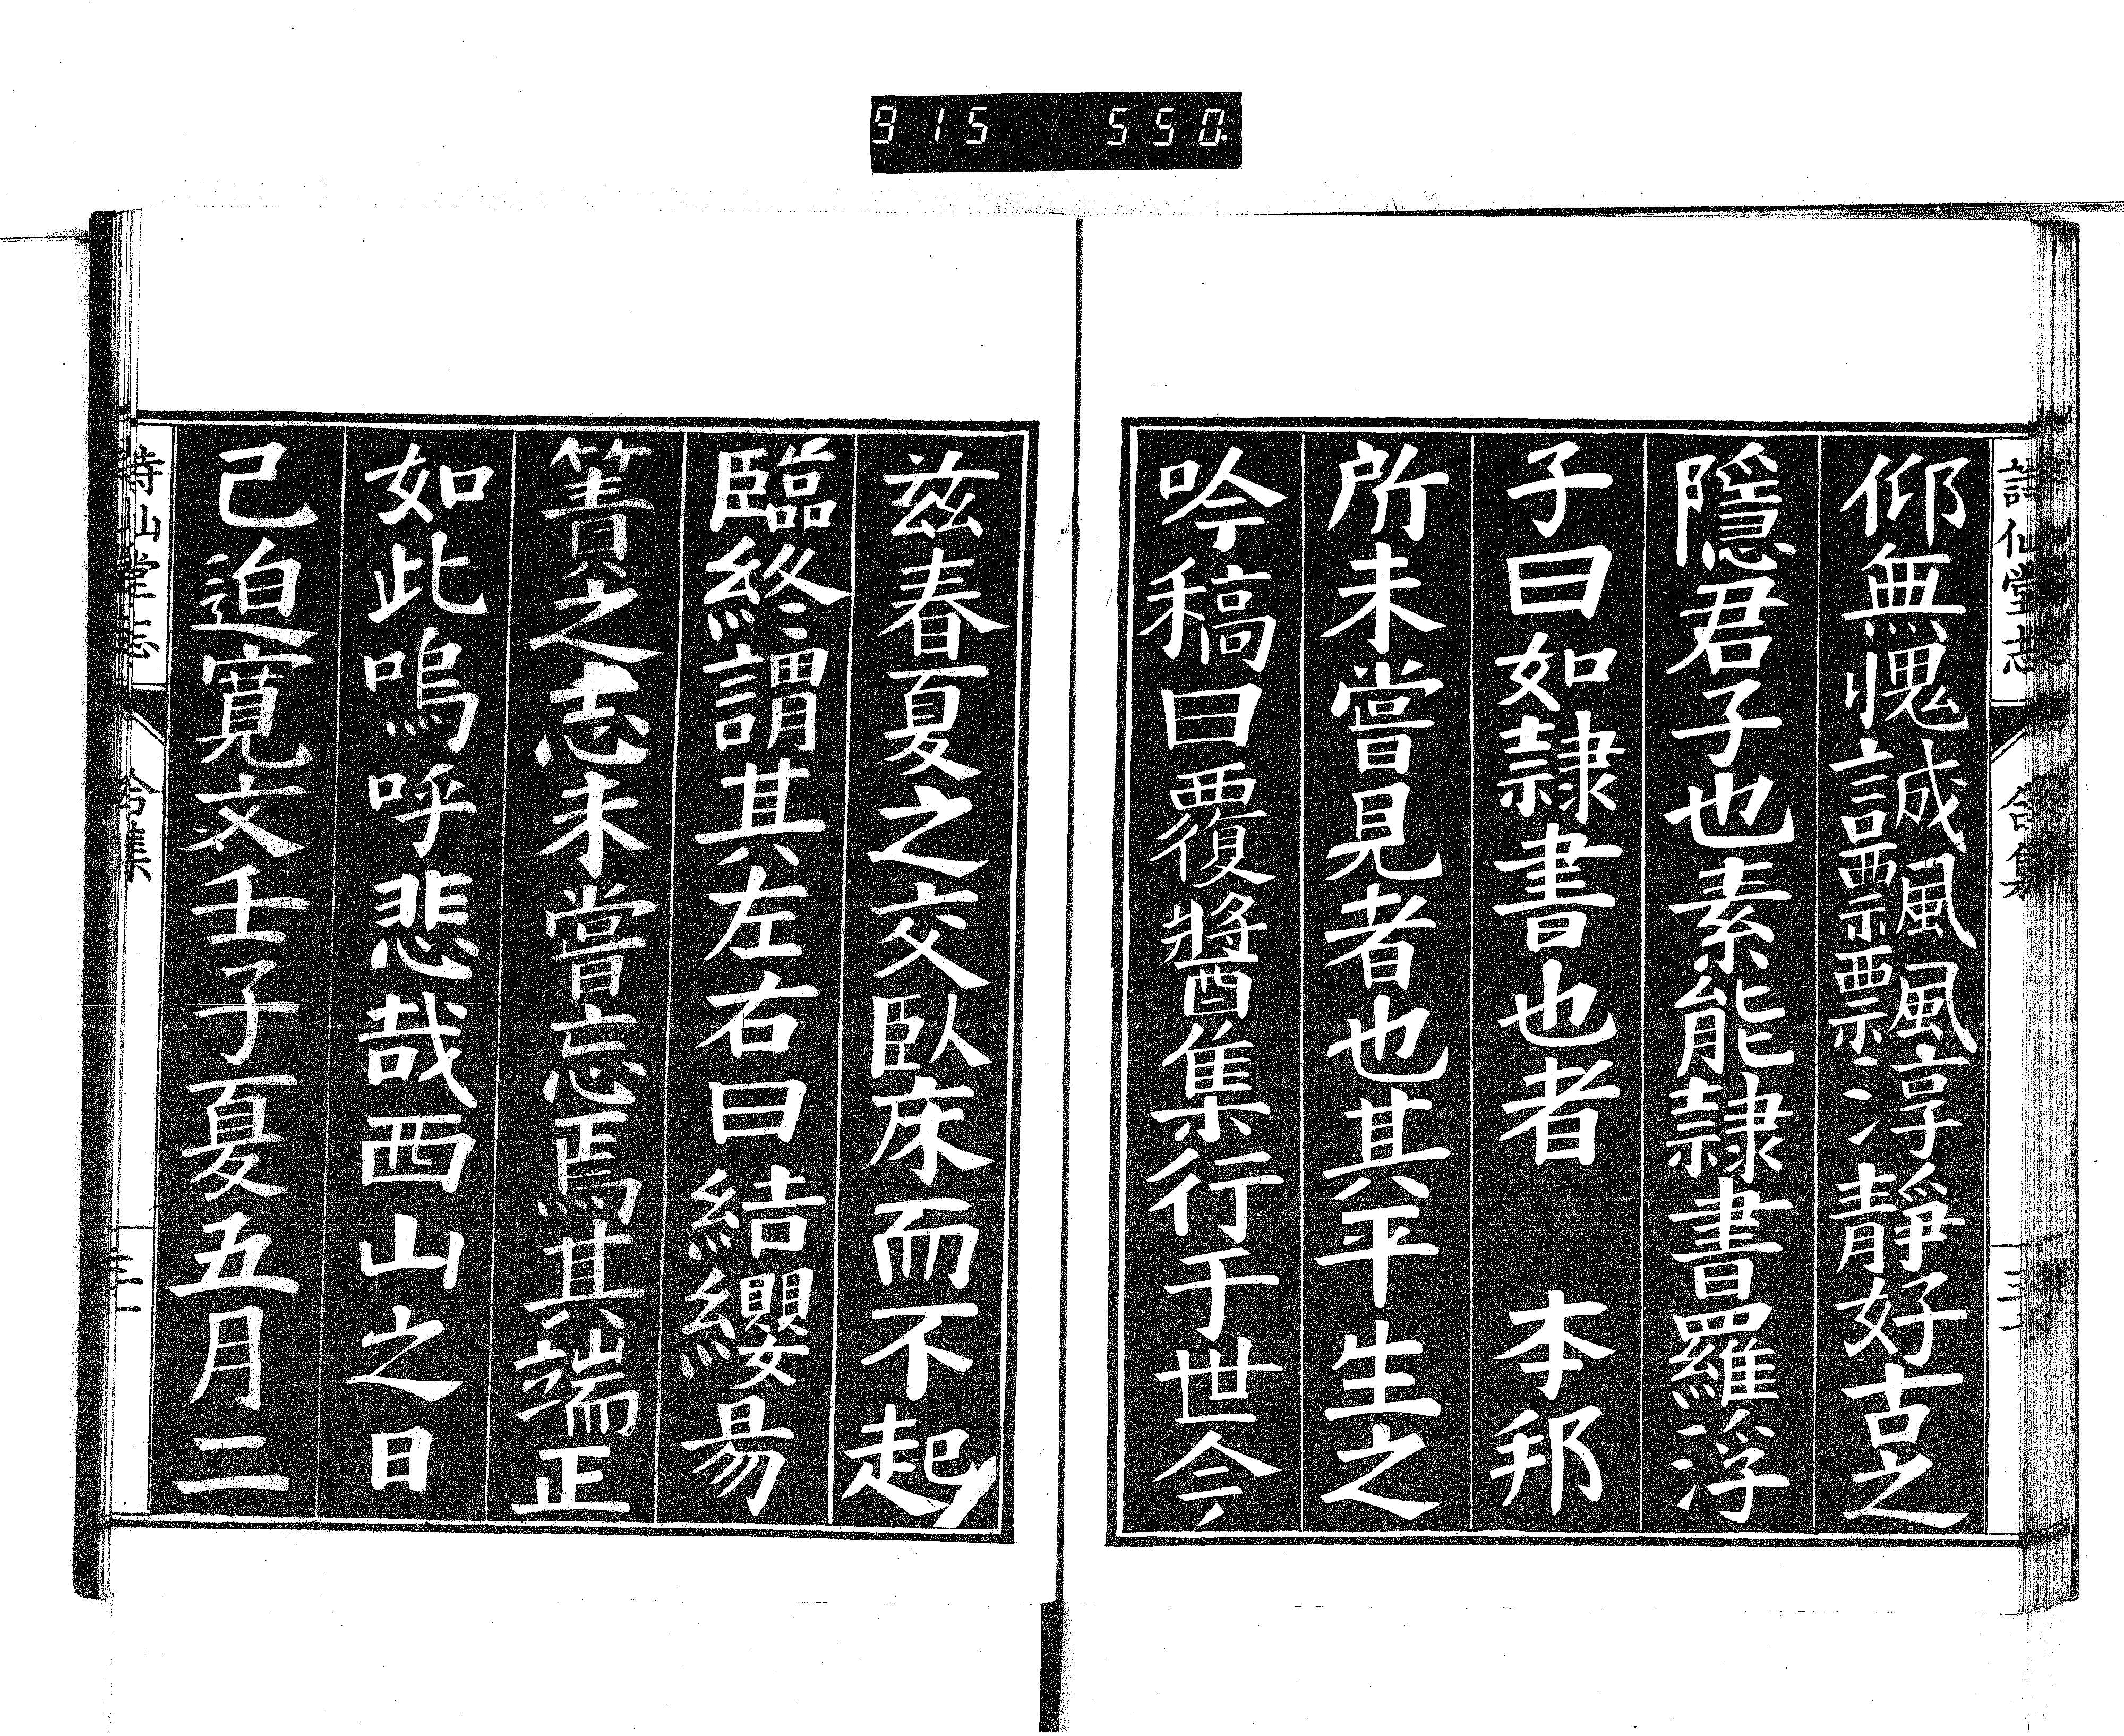 915 550.
詩仙堂志
仰無愧誠飄飄淳靜好古之
隱君子也素能隷書羅浮
子曰如隷書也者 本邦
所未嘗見者也其平生之
吟稿曰覆醬集行于世今
茲春夏之交臥床而不起
臨終謂其左右曰結纓易
簀之志未嘗忘焉其端正
如此嗚呼悲哉西山之日
己迫寬文壬子夏五月二
詩仙堂志